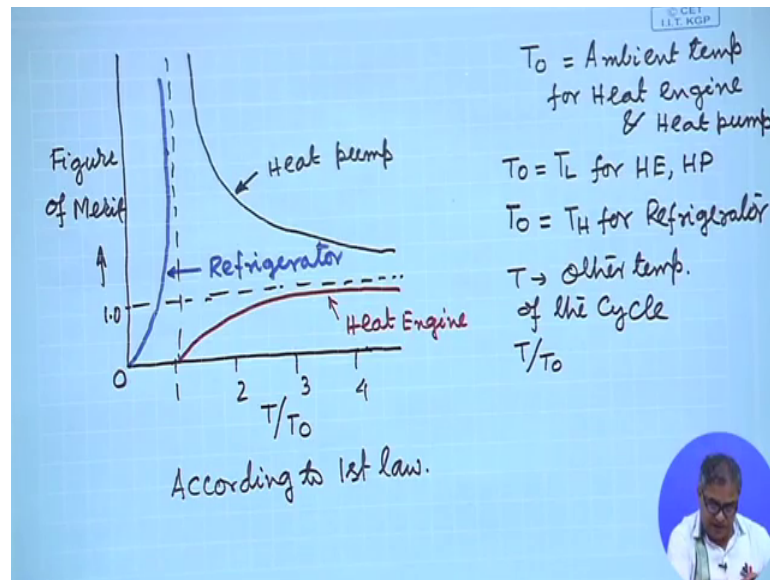 © CET
I.I.T. KGP
Figure
of Merit
1.0
0
1
2
3
4
T/T0
Heat pump
Refrigerator
Heat Engine
According to 1st law.
T0 = Ambient temp
for Heat engine
& Heat pump
T0 = TL for HE, HP
T0 = TH for Refrigerator
T → other temp.
of the Cycle
T/T0